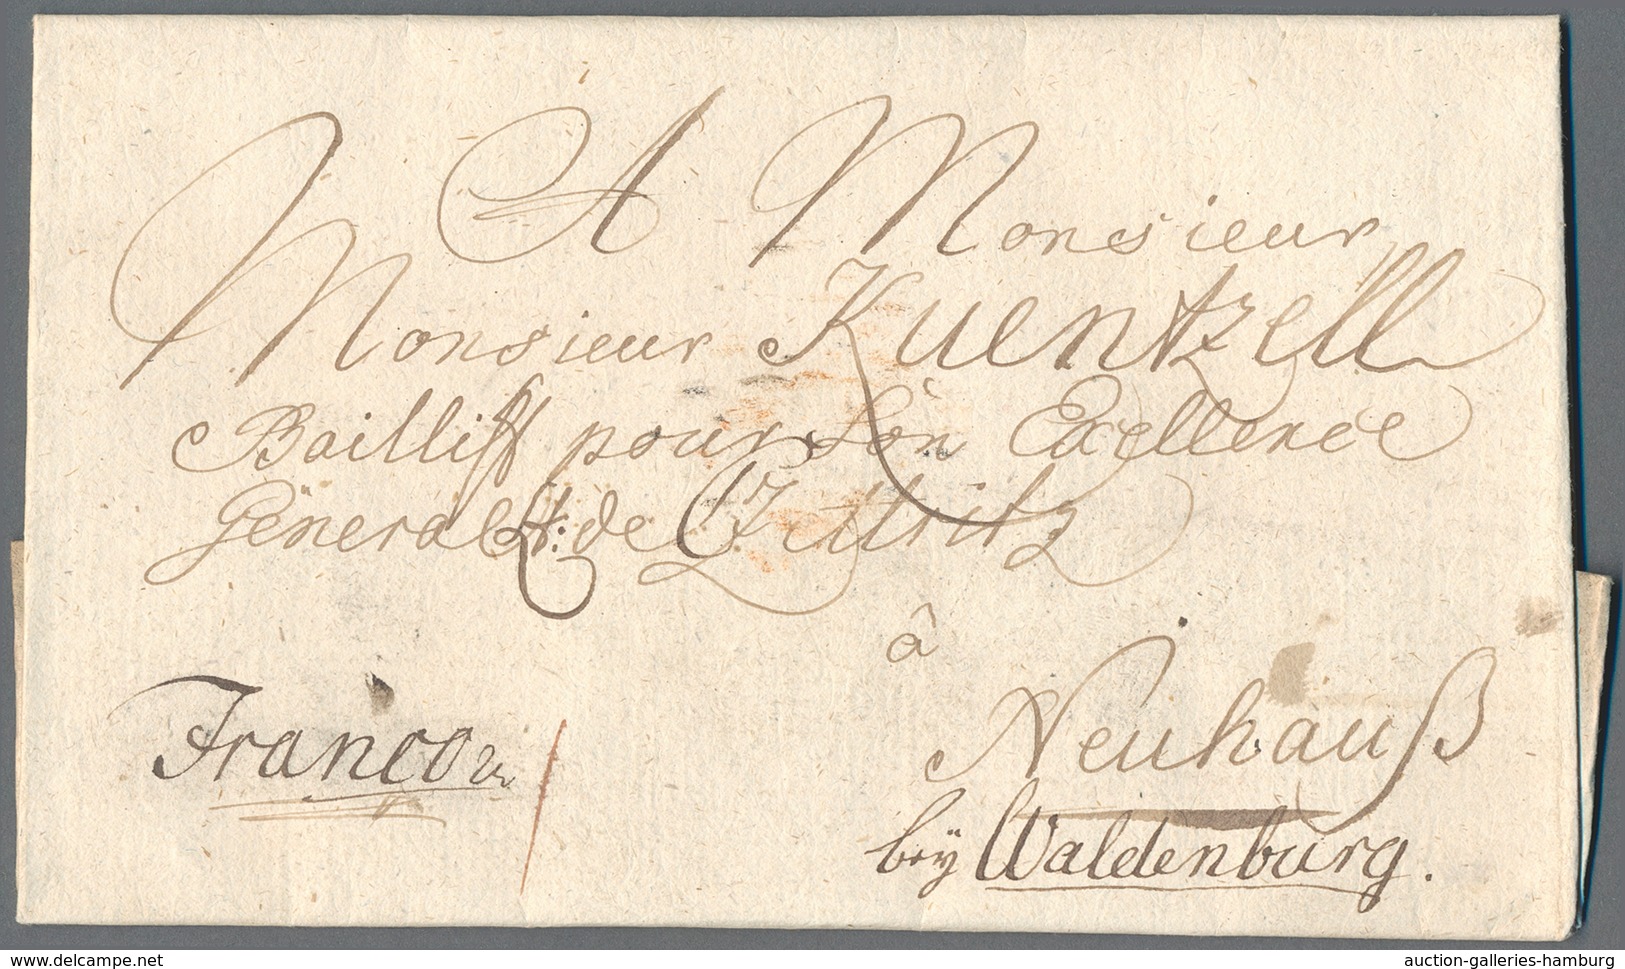 A Monsieur
Monsieur Kuentzell
Bailliff pour Son Excellence
Général Lt: de Czettritz
â
Neuhauß
Franco
bey Waldenburg.
www.delcampe.net
auction-galleries-hamburg